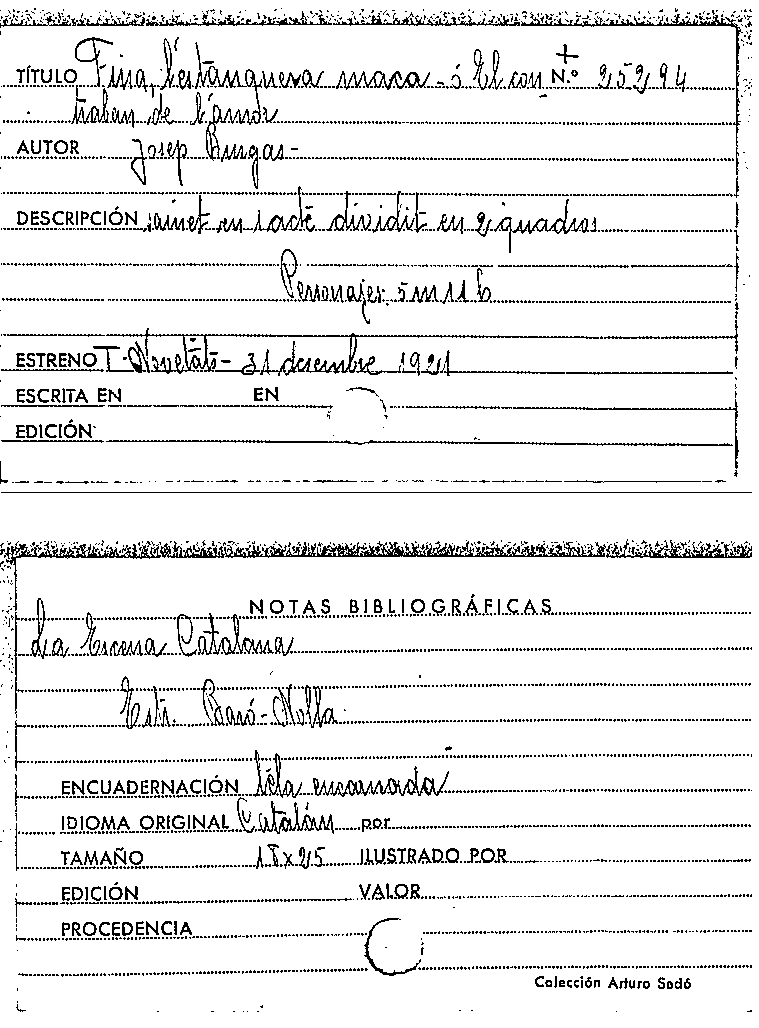 TÍTULO Fina, l'estanquera maca - ó El con- N.º 25294
traban de l'amor
AUTOR Josep Burgas -
DESCRIPCIÓN sainet en 1 acte dividit en 2 quadros
Personajes: 5 m 11 h
ESTRENO T. Novetats - 31 desembre 1921
ESCRITA EN EN
EDICIÓN
NOTAS BIBLIOGRÁFICAS
La Escena Catalana
Estr. Baró-Nolla
ENCUADERNACIÓN téla encarnada
IDIOMA ORIGINAL Catalán por
TAMAÑO 18x25 ILUSTRADO POR
EDICIÓN VALOR
PROCEDENCIA
Colección Arturo Sedó